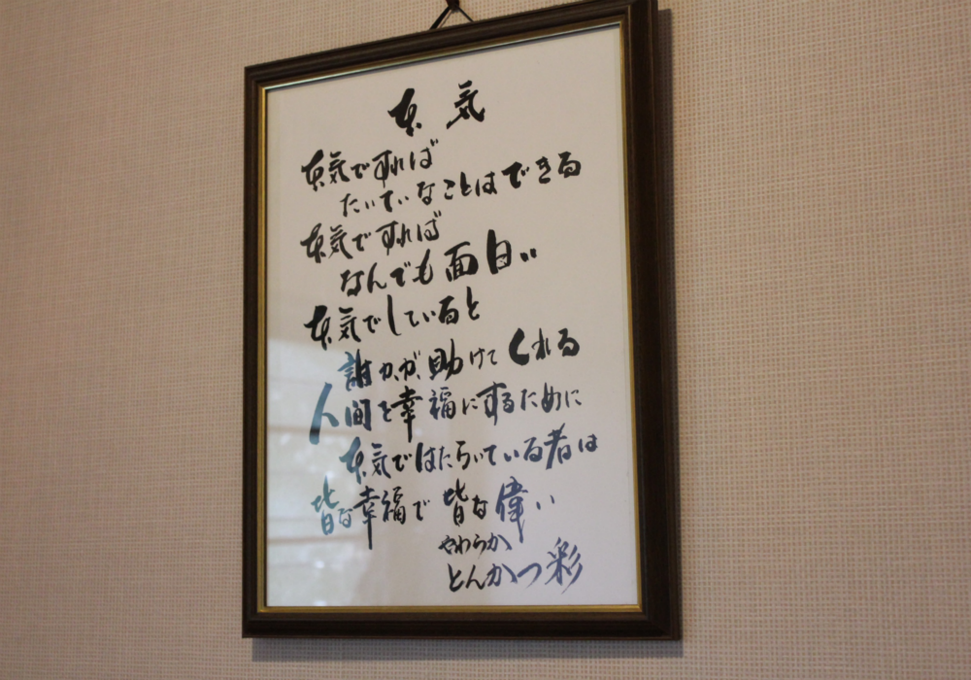 本気
本気ですれば
たいていなことはできる
本気ですれば
なんでも面白い
本気でしていると
誰かが助けてくれる
人間を幸福にするために
本気ではたらいている者は
皆な幸福で皆な偉い
やわらか
とんかつ彩